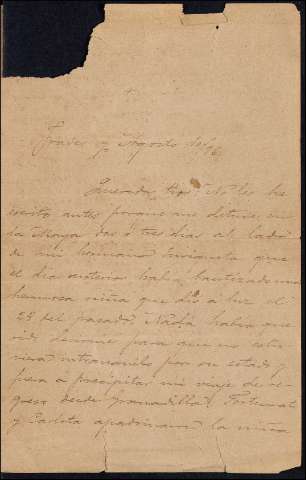 y Agosto de /96
Querido tio: No les he
escrito antes porque me detuve en
la Maya dos ó tres dias al lado
de mi hermana Enriqueta que
el dia anterior habia bautizado una
hermosa niña que dió a luz el
28 del pasado. Nada habia que
para que no estu
viera intranquilo por su estado,
pero a precipitar mi viaje de re
greso desde Granadilla. Fortunat
y Carlota apadrinaron la niña